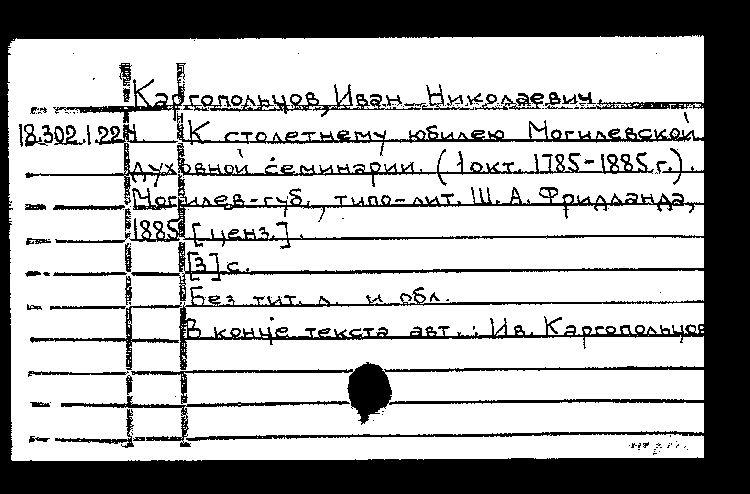 Каргопольцов, Иван Николаевич.
18.302.1.224. К столетнему юбилею Могилевской
духовной семинарии. (1 окт. 1785-1885 г.).
Могилев-губ., типо-лит. Ш. А. Фридланда,
1885 [ценз.].
[3] с.
Без тит. л. и обл.
В конце текста авт.: Ив. Каргопольцов